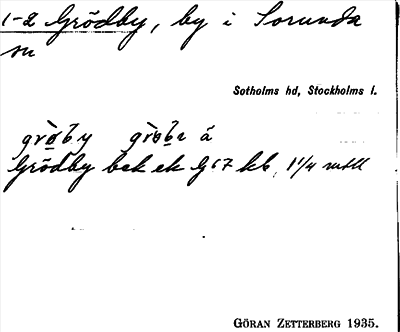 1-2 Grödby, by i Sorunda
sn
Sotholms hd, Stockholms l.
grø̀by grø̀bɩ å
Grödby bek ek G 67 kb, 1 1/4 mtll
GÖRAN ZETTERBERG 1935.